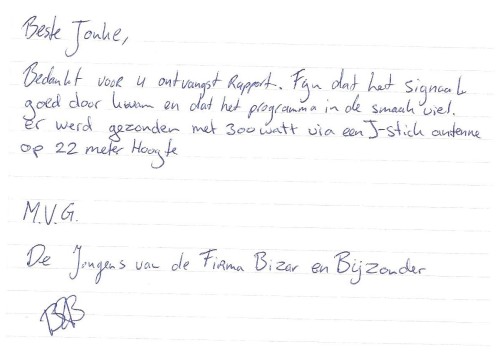 Beste Jouke,
Bedankt voor u ontvangst Rapport. Fijn dat het signaal
goed door kwam en dat het programma in de smaak viel.
Er werd gezonden met 300 watt via een J-stick antenne
op 22 meter Hoogte
M.V.G.
De Jongens van de Firma Bizar en Bijzonder
BAB